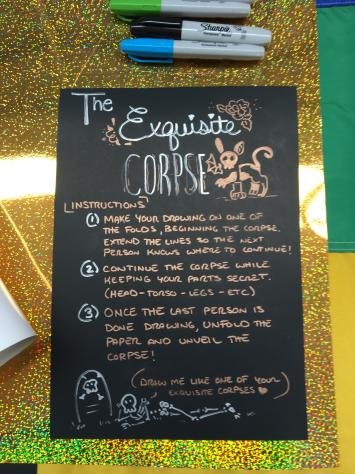 Sharpie
The
Exquisite
CORPSE
INSTRUCTIONS
① MAKE YOUR DRAWING ON ONE OF
THE FOLDS, BEGINNING THE CORPSE.
EXTEND THE LINES SO THE NEXT
PERSON KNOWS WHERE TO CONTINUE!
② CONTINUE THE CORPSE WHILE
KEEPING YOUR PARTS SECRET.
(HEAD-TORSO-LEGS-ETC)
③ ONCE THE LAST PERSON IS
DONE DRAWING, UNFOLD THE
PAPER AND UNVEIL THE
CORPSE!
(DRAW ME LIKE ONE OF YOUR
EXQUISITE CORPSES ♥)